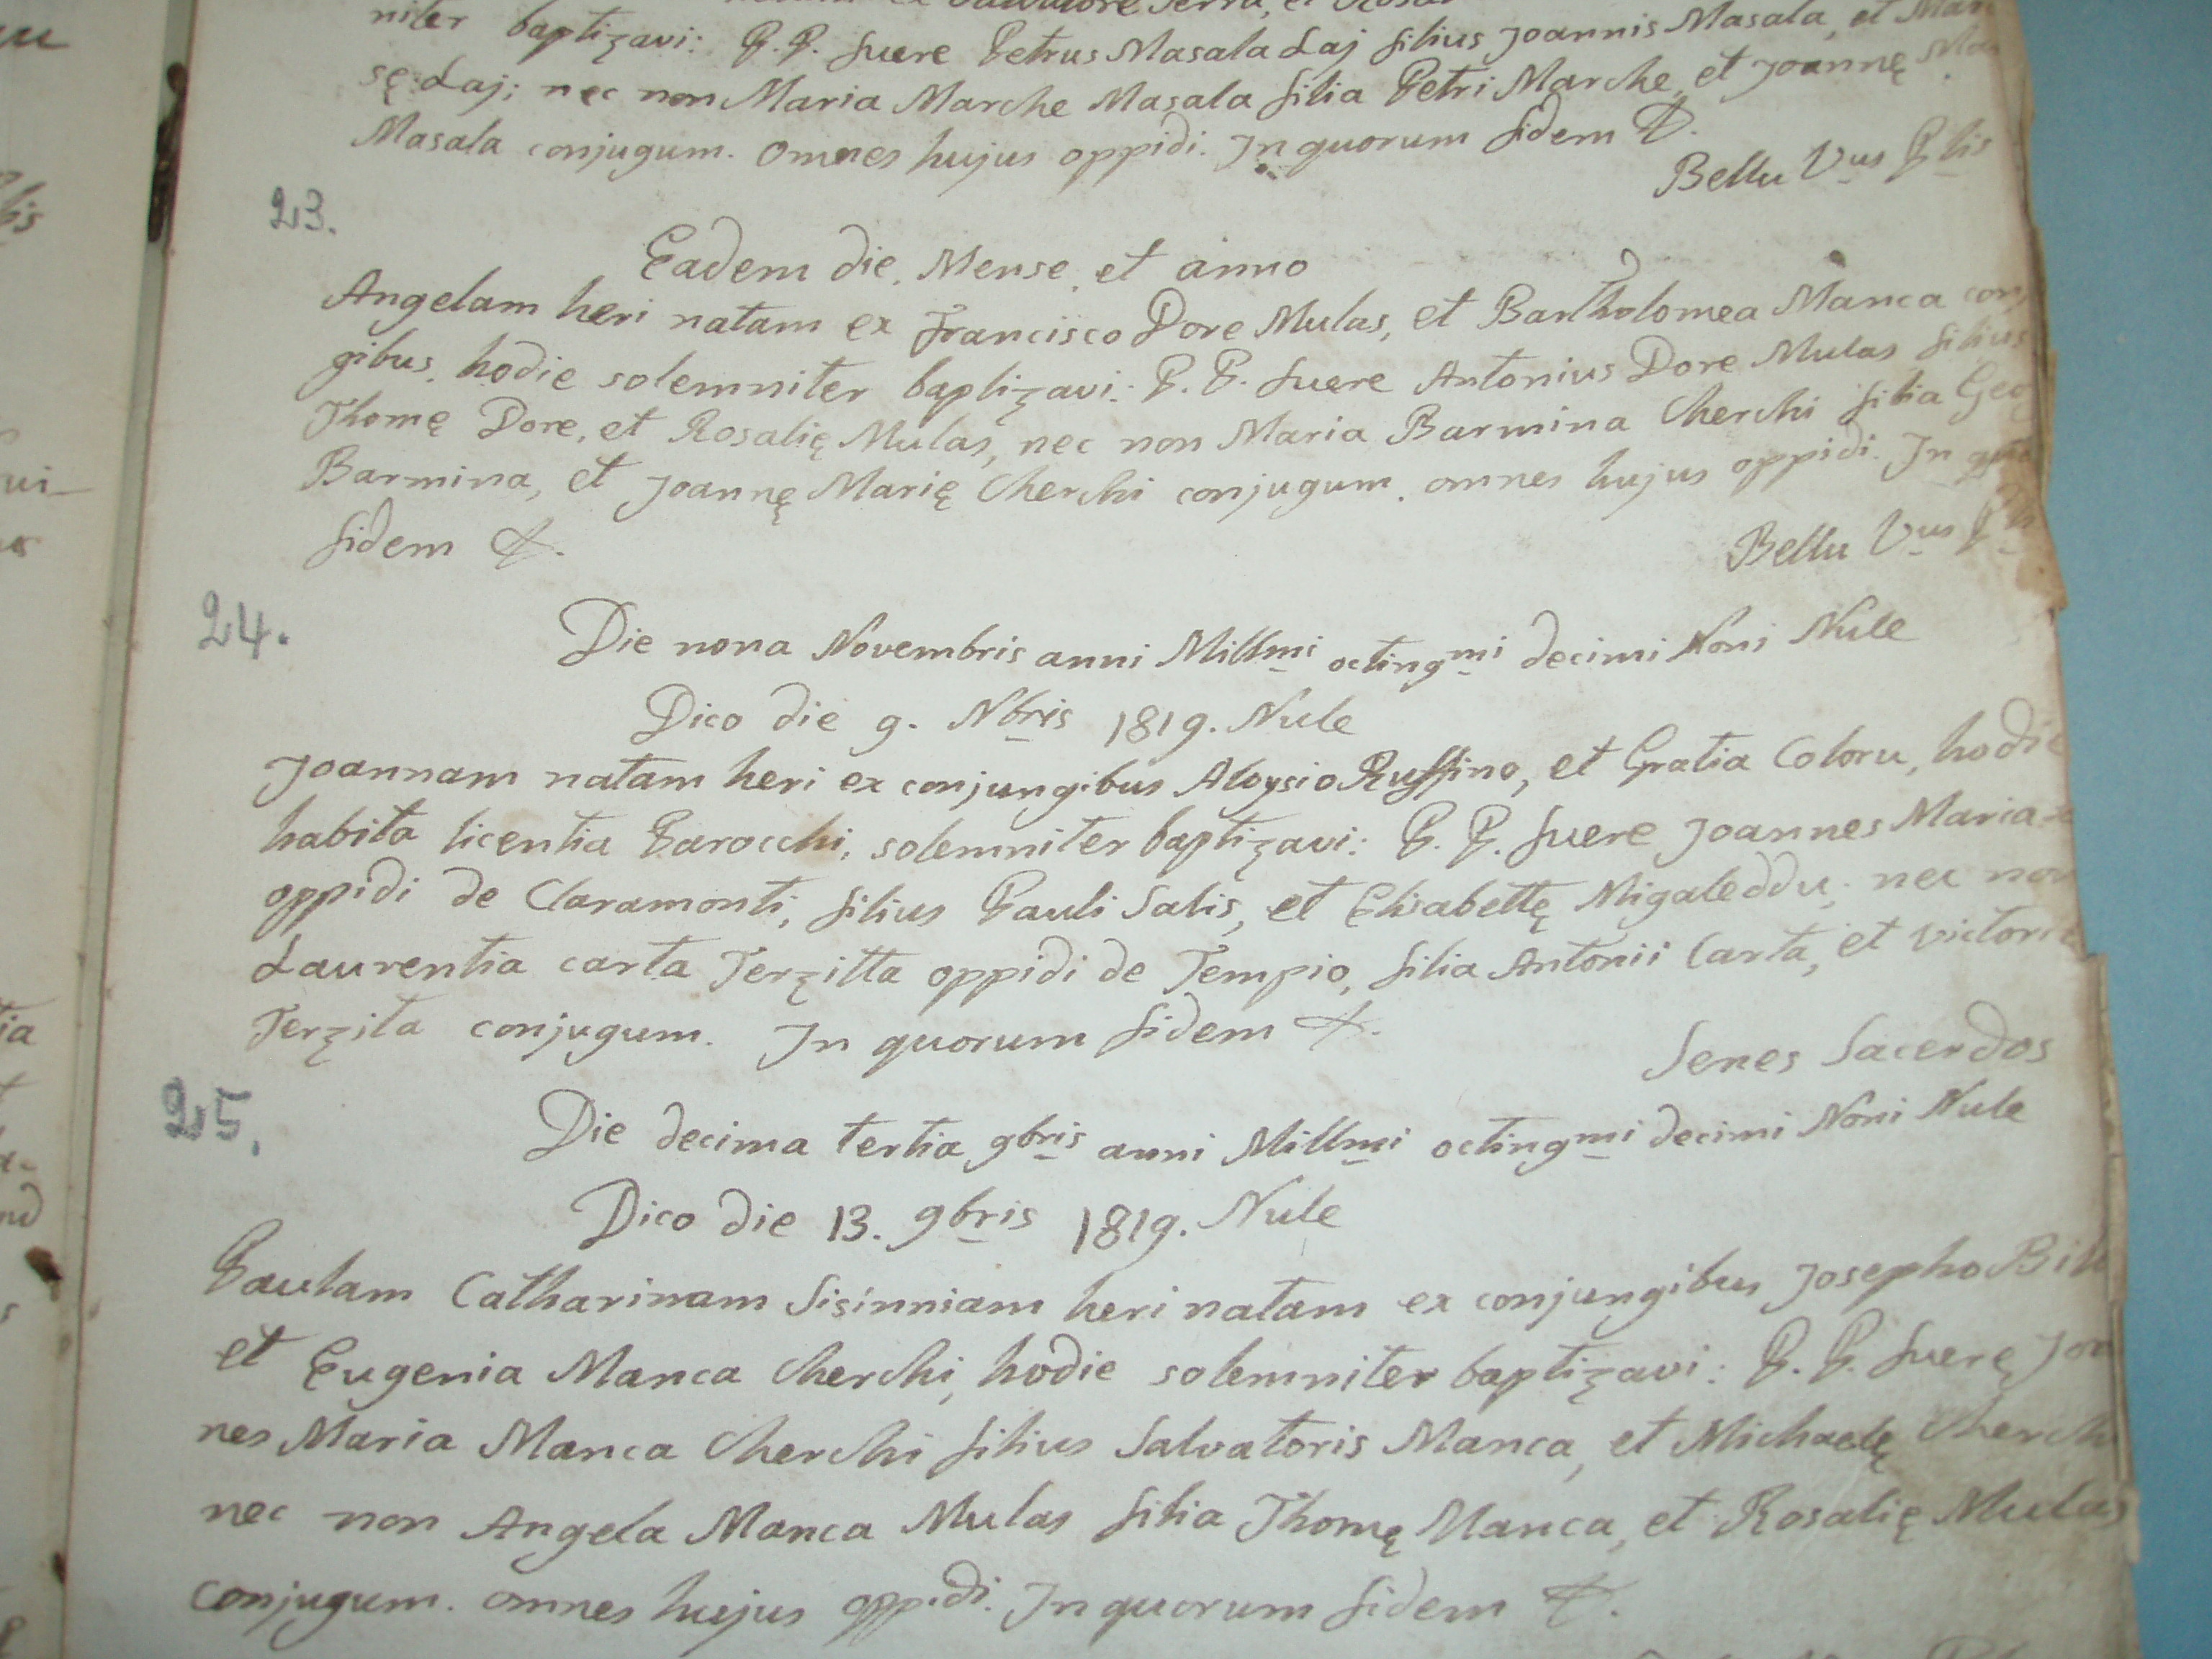 niter baptizavi: P. P. fuere Petrus Masala Laj filius Joannis Masala, et
sę Laj; nec non Maria Marche Masala filia Petri Marche, et Joannę
Masala conjugum. Omnes hujus oppidi. In quorum fidem &.
Bellu Vus Plis
23.
Eadem die, Mense, et anno
Angelam heri natam ex Francisco Dore Mulas, et Bartholomea Manca conj
gibus, hodie solemniter baptizavi: P. P. fuere Antonius Dore Mulas filius
Thomę Dore, et Rosalię Mulas, nec non Maria Barmina Cherchi filia Geo
Barmina, et Joannę Marię Cherchi conjugum. omnes hujus oppidi. In quo
fidem &.
Bellu Vus
24.
Die nona Novembris anni Millmi octingmi decimi Noni Nule
Dico die 9. Nbris 1819. Nule
Joannam natam heri ex conjungibus Aloysio Ruffino, et Gratia Coloru, hodie
habita licentia Parocchi, solemniter baptizavi: P. P. fuere Joannes Maria
oppidi de Claramonti, filius Pauli Salis, et Elisabettę Migaleddu; nec non
Laurentia carta Terzitta oppidi de Tempio, filia Antonii Carta, et Victorię
Terzita conjugum. In quorum fidem &.
Senes Sacerdos
25.
Die decima tertia 9bris anni Millmi octingmi decimi Noni Nule
Dico die 13. 9bris 1819. Nule
Paulam Catharinam Sisinniam heri natam ex conjungibus Josepho
et Eugenia Manca Cherchi, hodie solemniter baptizavi: P. P. fuerę Joa
nes Maria Manca Cherchi filius Salvatoris Manca, et Michaelę Cherchi
nec non Angela Manca Mulas filia Thomę Manca, et Rosalię Mulas
conjugum. omnes hujus oppidi. In quorum fidem &.